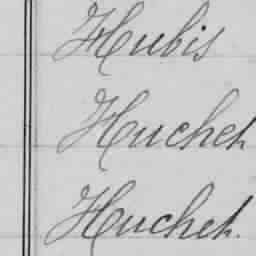 Hubis
Huchet
Huchet.